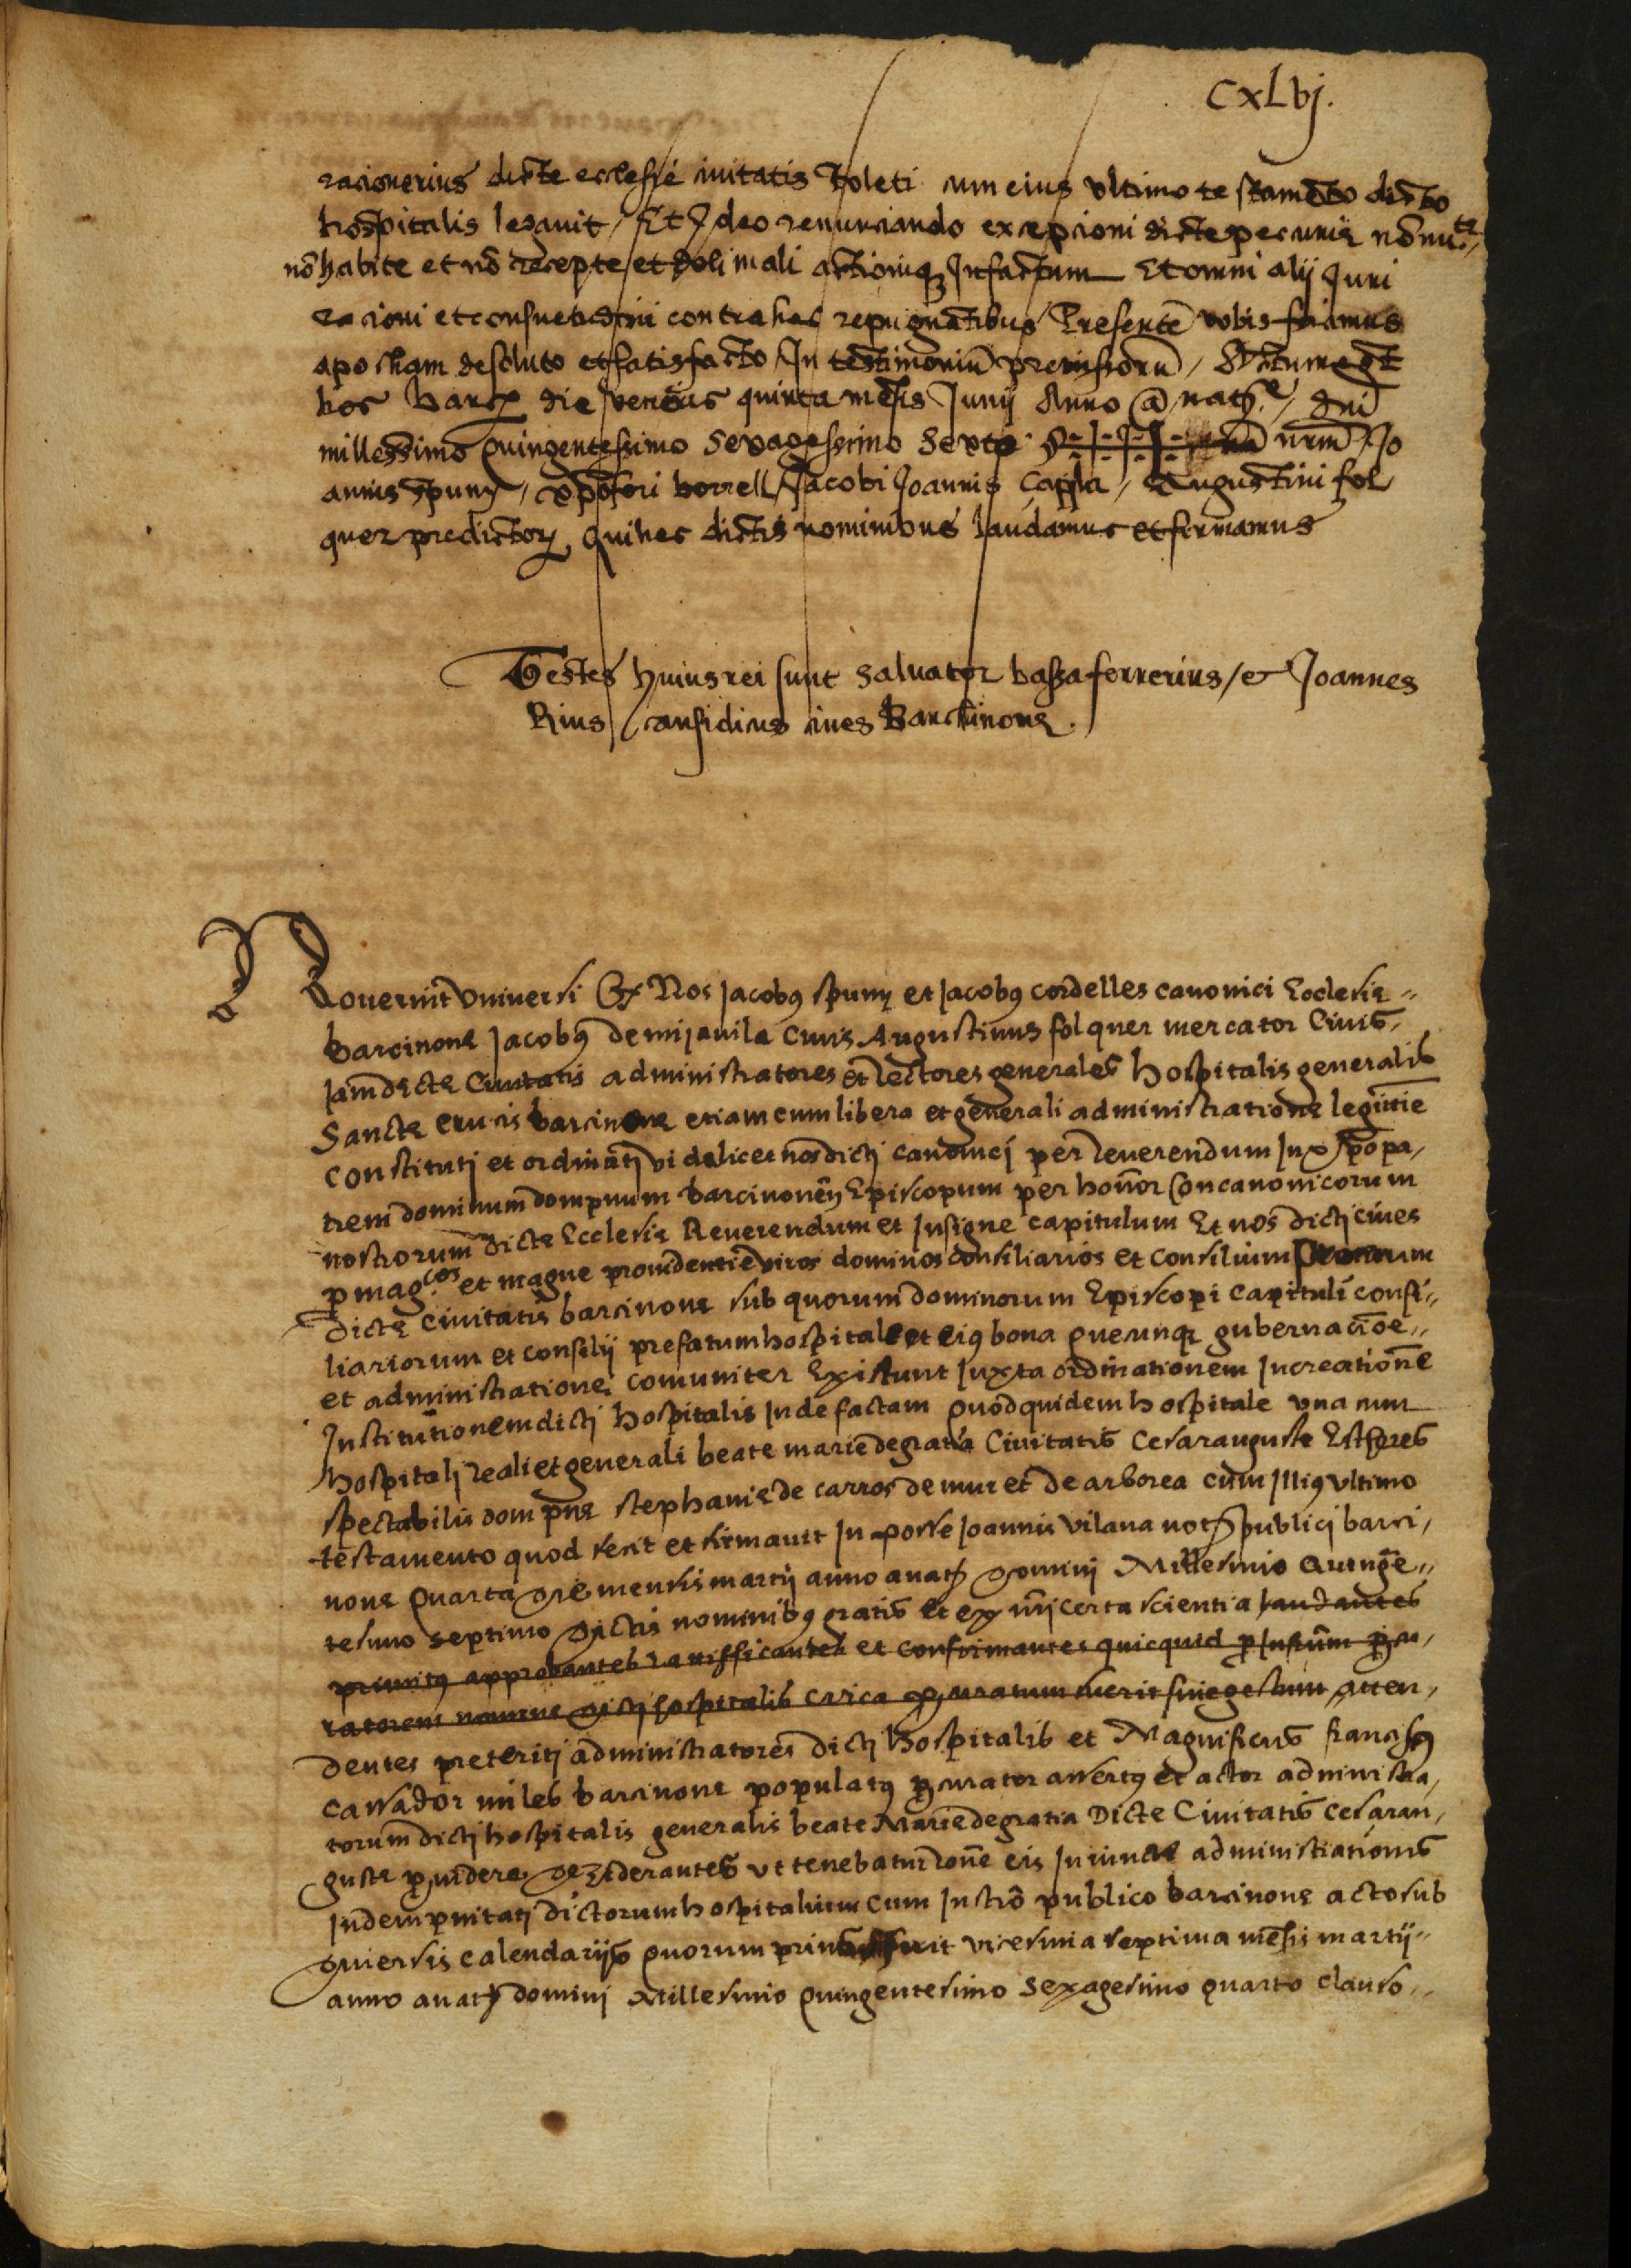 CxLvj.
racionerius dicte ecclesie civitatis Toleti cum eius ultimo testamēto dicto
hospitalis legavit / Et Ideo renunciando excepcioni dicte pecunie nō nu.te /
nō habite et nō recepte / et doli mali actioniq; Infactum Et omni alij Juri
racioni et consuetudini contra hec repugnātibus / Presentē vobis facimus
apocham de soluto et satisfacto / In testimoniū premissorū / Actum est
hoc Barcͫ die veneris quinta mēsis Junij Anno a nať.e / dñi
millessimo quingentessimo sexagessimo sexto nrm̄ / Jo
annis spuny / xp̄ofori borrell / Jacobi Joannis Capila / Augustini fol
quer predictoꝝ Qui hec dictis nominibus laudamus et firmamus
Testes huius rei sunt Salvator bassa ferrerius / et Joannes
Rius / causidicus cives Barchinone .
Noverint Universi Qͫ Nos Jacobꝰ spuny et Jacobꝰ cordelles canonici Ecclesie
barcinone Jacobꝰ de mijavila Civis Augustinus folquer mercator Civis
Jamdicte Civitatis administratores et rectores generales hospitalis generalis
Sancte crucis barcinone etiam cum libera et generali administratione legittīe
constituti et ordinati videlicet nos dicti canonici per Reverendum In xp̄o pa,
trem dominum dompnum barcinonēn Episcopum per honor Concanonicorum
nostrorum dicte Ecclesie Reverendum et Insigne capitulum Et nos dicti cives
ꝑ mag.cos et magne providentie viros dominos consiliarios et consilium
dicte civitatis barcinone sub quorum dominorum Episcopi capituli consi,,
liariorum et consilij prefatum hospitale et eiꝰ bona quecunqꝫ gubernacioē,,
et administratione comuniter Existunt Juxta ordinationem In creatione
Institutionem dicti hospitalis Inde factam Quodquidem hospitale una cum
hospitali reali et generali beate marie de gratia Civitatis Cesarauguste Est heres
spectabilis dompne stephanie de carros de mur et de arborea cum Illiꝰ ultimo
testamento quod fecit et firmavit In posse Joannis vilana noťꝭ publici barci,
none quarta die mensis martij anno a naťꝭ domini Millesimo Quingē,,
tesimo septimo dictis nominibꝰ gratis et ex nr̄i certa scientia laudantes
primitꝰ approbantes ratifficantes et confirmantes quicquid ꝑ Infrūm ꝓcu,
ratorem nomine dicti hospitalis circa ꝓcuratum fuerit sive gestum Atten,
dentes preteriti administratores dicti hospitalis et Magnificus franciscꝰ
cassador miles barcinone populatꝰ ꝓcurator assertꝰ et actor administra,
torum dicti hospitalis generalis beate Marie de gratia Dicte Civitatis Cesarau,
guste ꝓvidere deziderantes ut tenebatur rōne eis Iniuncte administrationis
Indempnitati dictorum hospitalium Cum Instrō publico barcinone acto sub
diversis calendarijs quorum primū fuit vicesima septima mēsis martij,,
anno a naťꝭ domini Millesimo quingentesimo sexagesimo quarto clauso,,